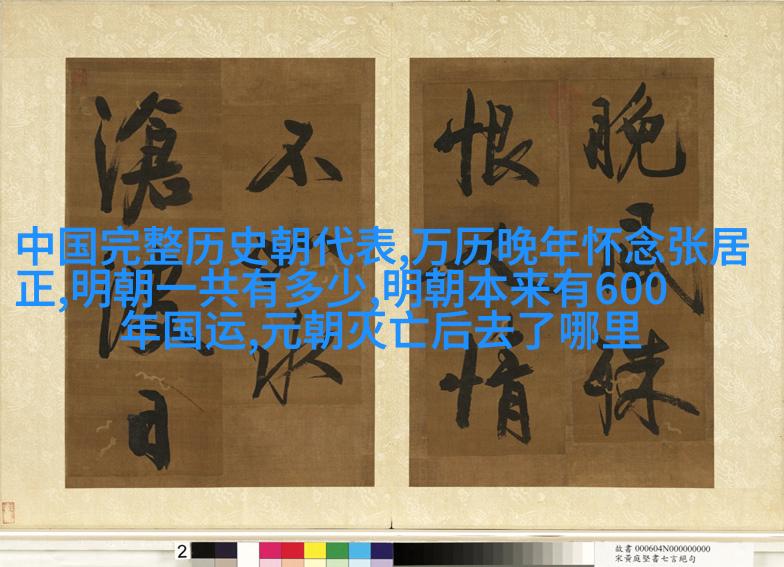 中国完整历史朝代表,万历晚年怀念张居
正,明朝一共有多少,明朝本来有600
年国运,元朝灭亡后去了哪里
晚風
恨人情
不如水
滄浪日
2
故書 000604N000000000
宋黃庭堅書七言絕句